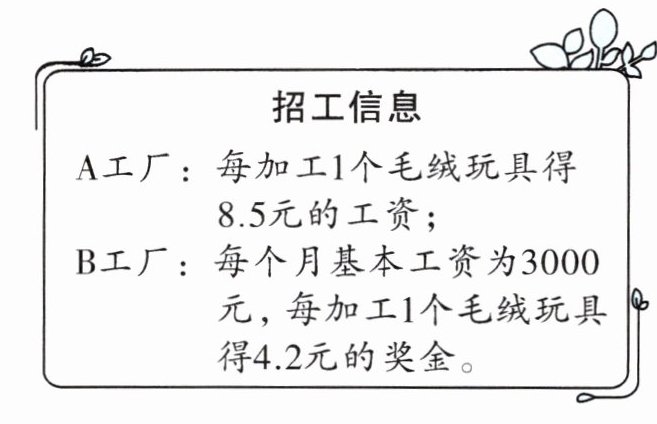 招工信息
A工厂：每加工1个毛绒玩具得
8.5元的工资；
B工厂：每个月基本工资为3000
元，每加工1个毛绒玩具
得4.2元的奖金。